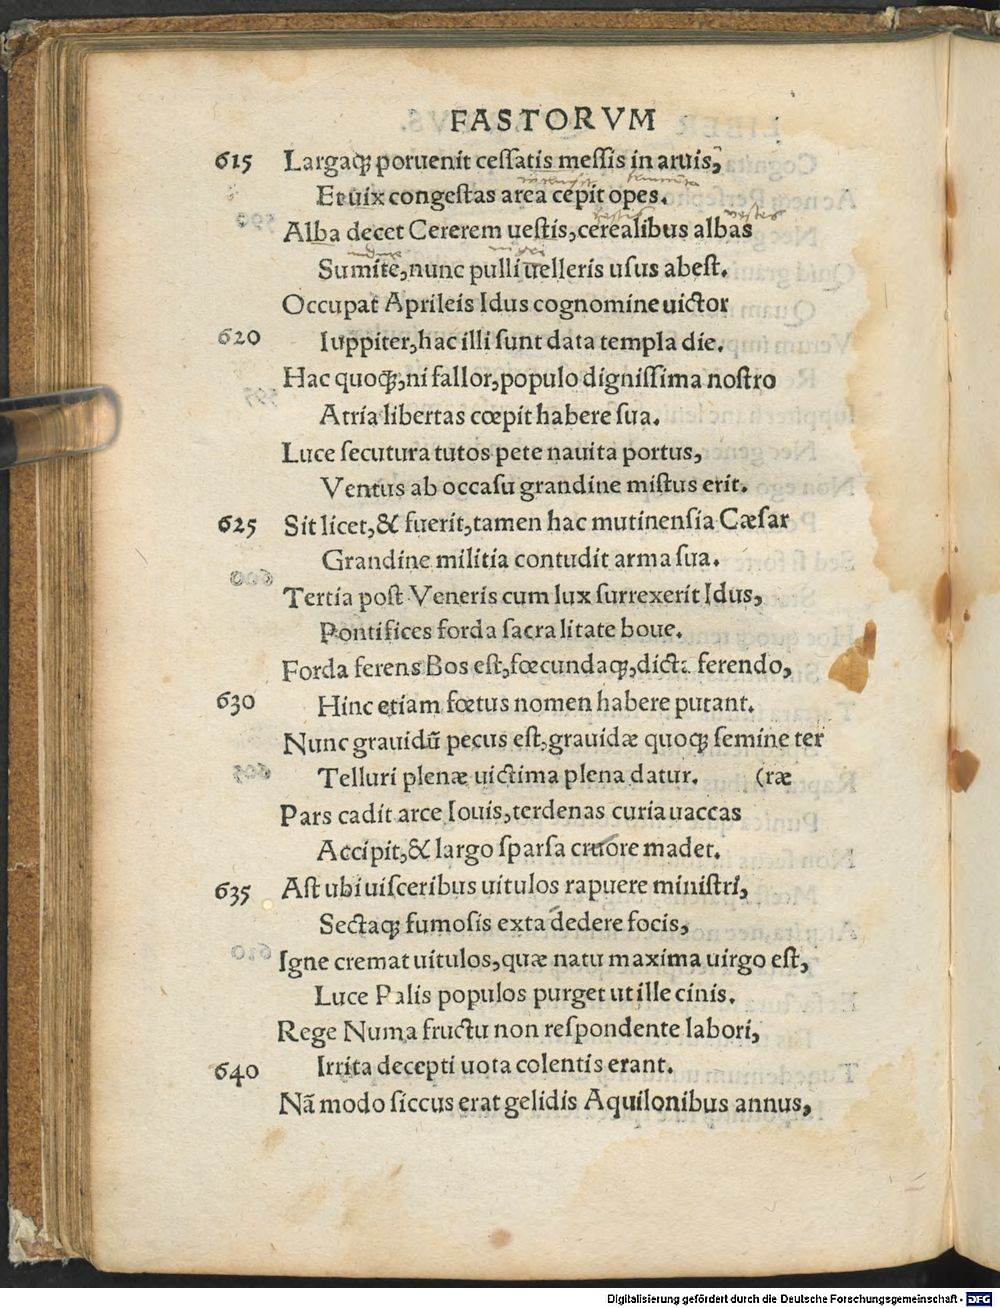 FASTORVM
615 Largaq; poruenit ceſſatis meſſis in aruis,
Et uix congeſtas area cepit opes.
Alba decet Cererem ueſtis, cerealibus albas
Sumite, nunc pulli uelleris uſus abeſt.
Occupat Aprileis Idus cognomine uictor
620 Iuppiter, hac illi ſunt data templa die.
Hac quoq;, ni fallor, populo digniſſima noſtro
Atria libertas cœpit habere ſua.
Luce ſecutura tutos pete nauita portus,
Ventus ab occaſu grandine miſtus erit.
625 Sit licet, & fuerit, tamen hac mutinenſia Cæſar
Grandine militia contudit arma ſua.
Tertia poſt Veneris cum lux ſurrexerit Idus,
Pontifices forda ſacra litate boue.
Forda ferens Bos eſt, fœcundaq;, dicta ferendo,
630 Hinc etiam fœtus nomen habere putant.
Nunc grauidū pecus eſt, grauidæ quoq; ſemine ter
Telluri plenæ uictima plena datur. (ræ
Pars cadit arce Iouis, terdenas curia uaccas
Accipit, & largo ſparſa cruore madet.
635 Aſt ubi uiſceribus uitulos rapuere miniſtri,
Sectaq; fumoſis exta dedere focis,
Igne cremat uitulos, quæ natu maxima uirgo eſt,
Luce Palis populos purget ut ille cinis.
Rege Numa fructu non reſpondente labori,
640 Irrita decepti uota colentis erant.
Nā modo ſiccus erat gelidis Aquilonibus annus,
Digitalisierung gefördert durch die Deutsche Forschungsgemeinschaft - DFG